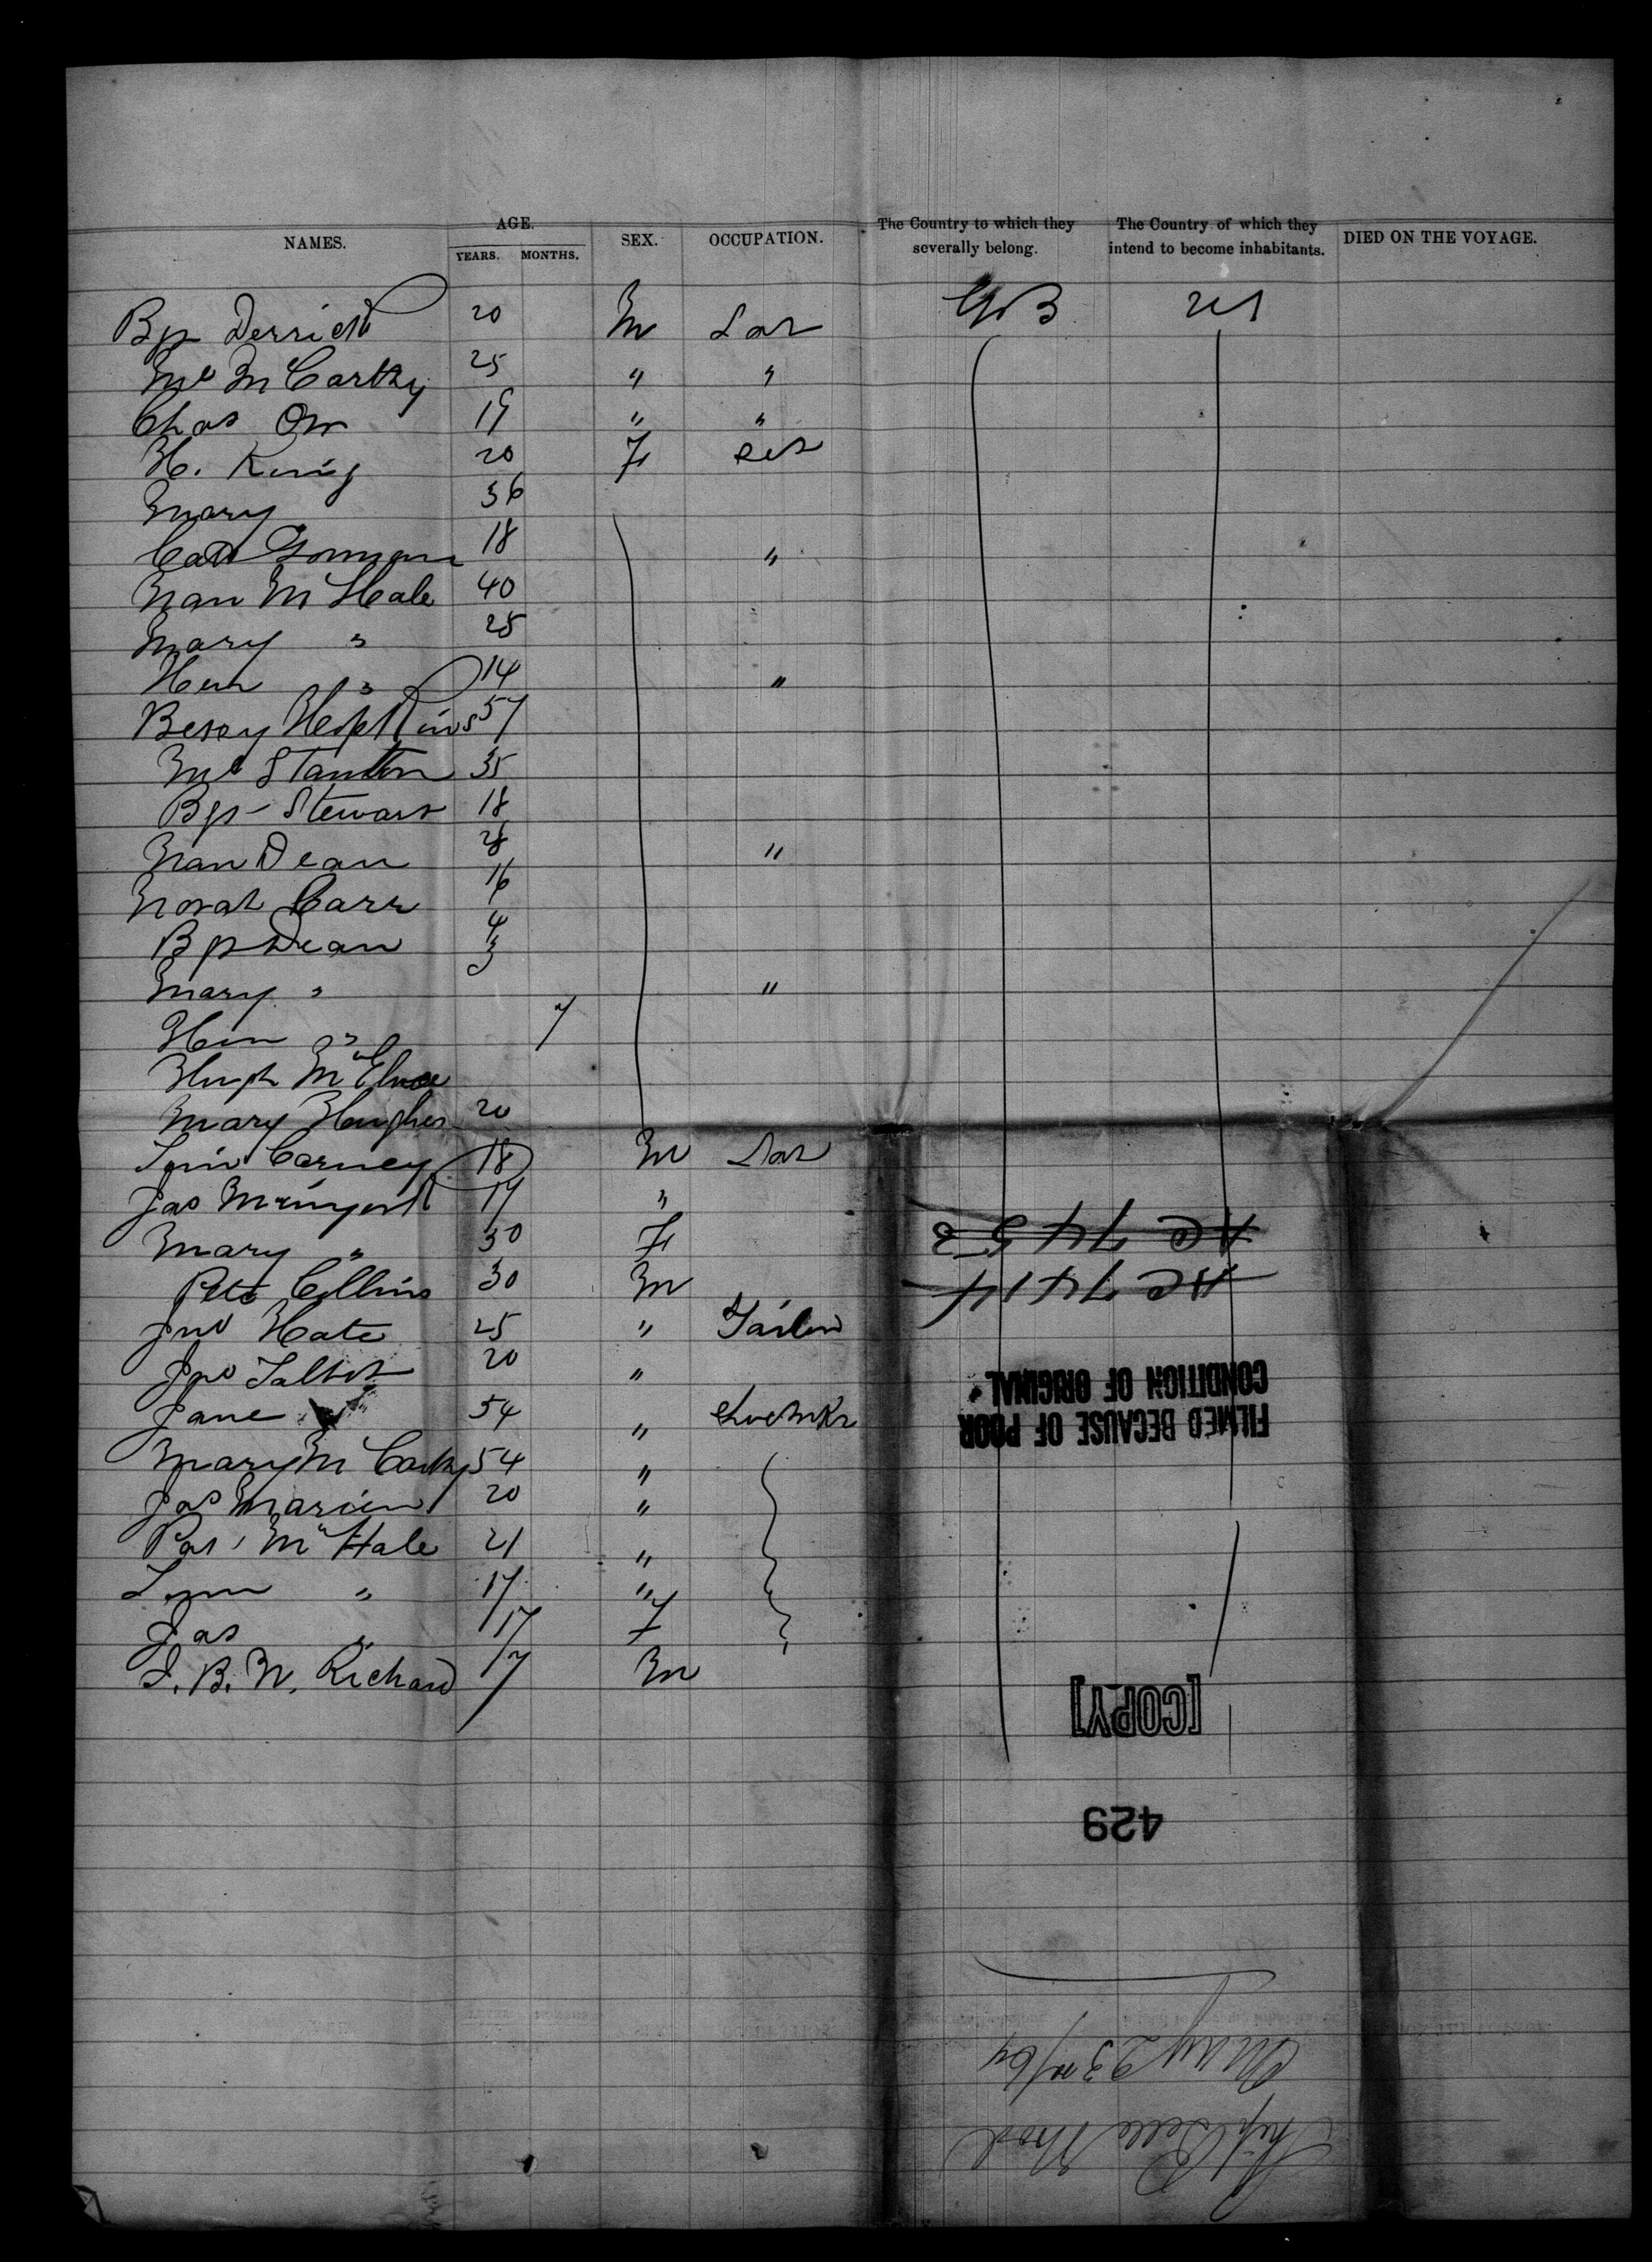 NAMES. AGE. YEARS. MONTHS. SEX. OCCUPATION. The Country to which they severally belong. The Country of which they intend to become inhabitants. DIED ON THE VOYAGE.
Bgt Derrick 20 M Lar GB US
Ml McCarthy 25 " "
Chas Orr 19 " "
H. King 20 F
Mary 36
Cath Gorman 18 "
Nan McHale 40
Mary " 25
Hen " 14 "
Bessy Hopkins 57
Ml Stanton 35
Bgt Stewart 18
Nan Dean 28 "
Norah Carr 16
Bgt Dean 4
Mary " 3 "
Hen " 7
Hugh
Mary Hughes 20
Carney 18 M Lar
Jas 17 "
Mary " 30 F
Pat Collins 30 M
Jno Hate 25 " Tailor
Jno Talbot 20 "
Jane 54 " Shoemkr
Mary McCarthy 54 "
Jas 20 "
Pat McHale 21 "
" 17 "
Jas " 17 F
J. B. W. Richard 17 M
AC 7453
AC 7414
FILMED BECAUSE OF POOR
CONDITION OF ORIGINAL
[COPY]
429
Ship Belle Wood
May 23rd/64